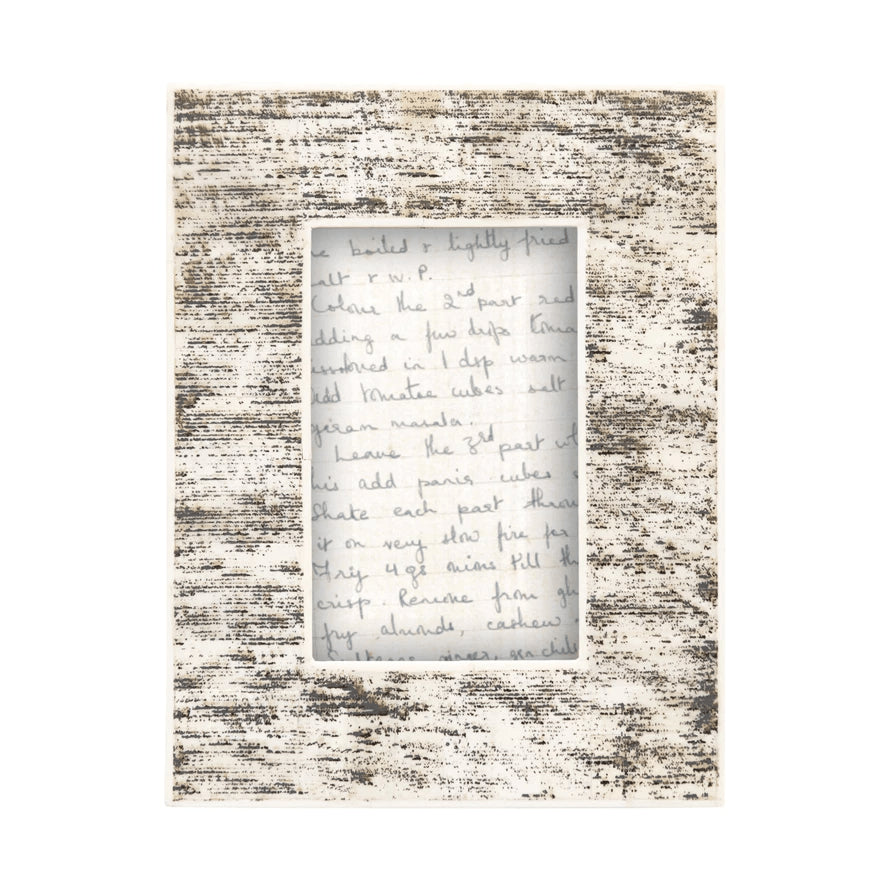 e boiled & lightly fried
alt & w.P.
Colour the 2nd part red
dding a few drops toma
issolved in 1 dsp warm
Add tomatoe cubes salt
garam masala.
Leave the 3rd part wh
his add panir cubes s
Shake each part throu
it on very slow fire for
Fry 4 gs onions till th
crisp. Remove from gh
fry almonds, cashew
ginger, gr chili